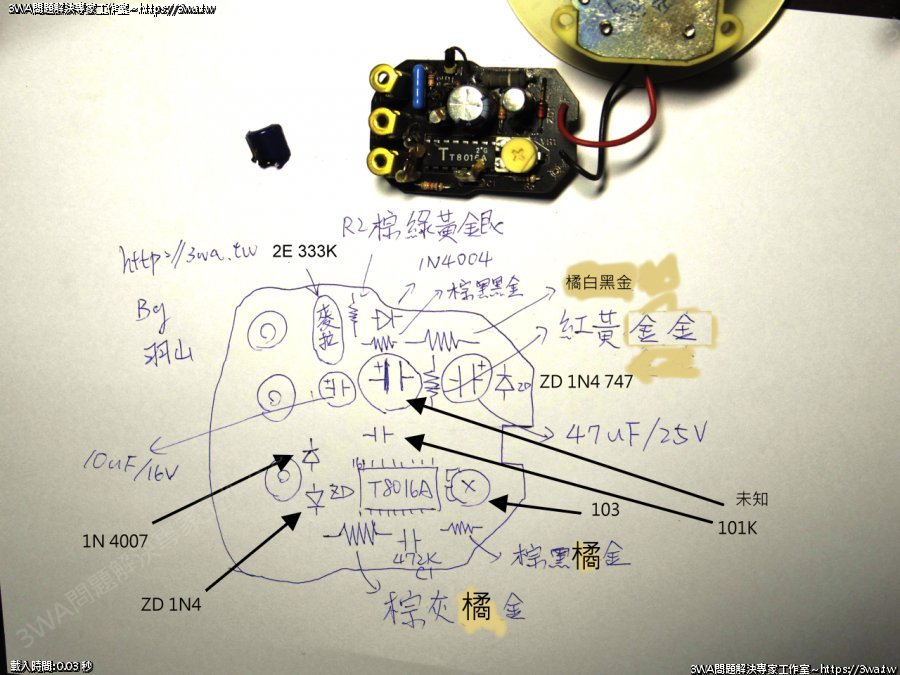 3WA問題解決專家工作室~https://3wa.tw
3WA問題解決專家工作室~https://3wa.tw
T T8016A
R2棕綠黃銀
http://3wa.tw
2E 333K
1N4004
棕黑黑金
橘白黑金
By
羽山
麥拉
紅黃金金
ZD
ZD 1N4 747
10uF/16V
47uF/25V
16
ZD
T8016A
未知
103
101K
1N 4007
472K
C1
棕黑橘金
ZD 1N4
棕灰橘金
3WA問題解決專家
載入時間: 0.03 秒
3WA問題解決專家工作室~https://3wa.tw